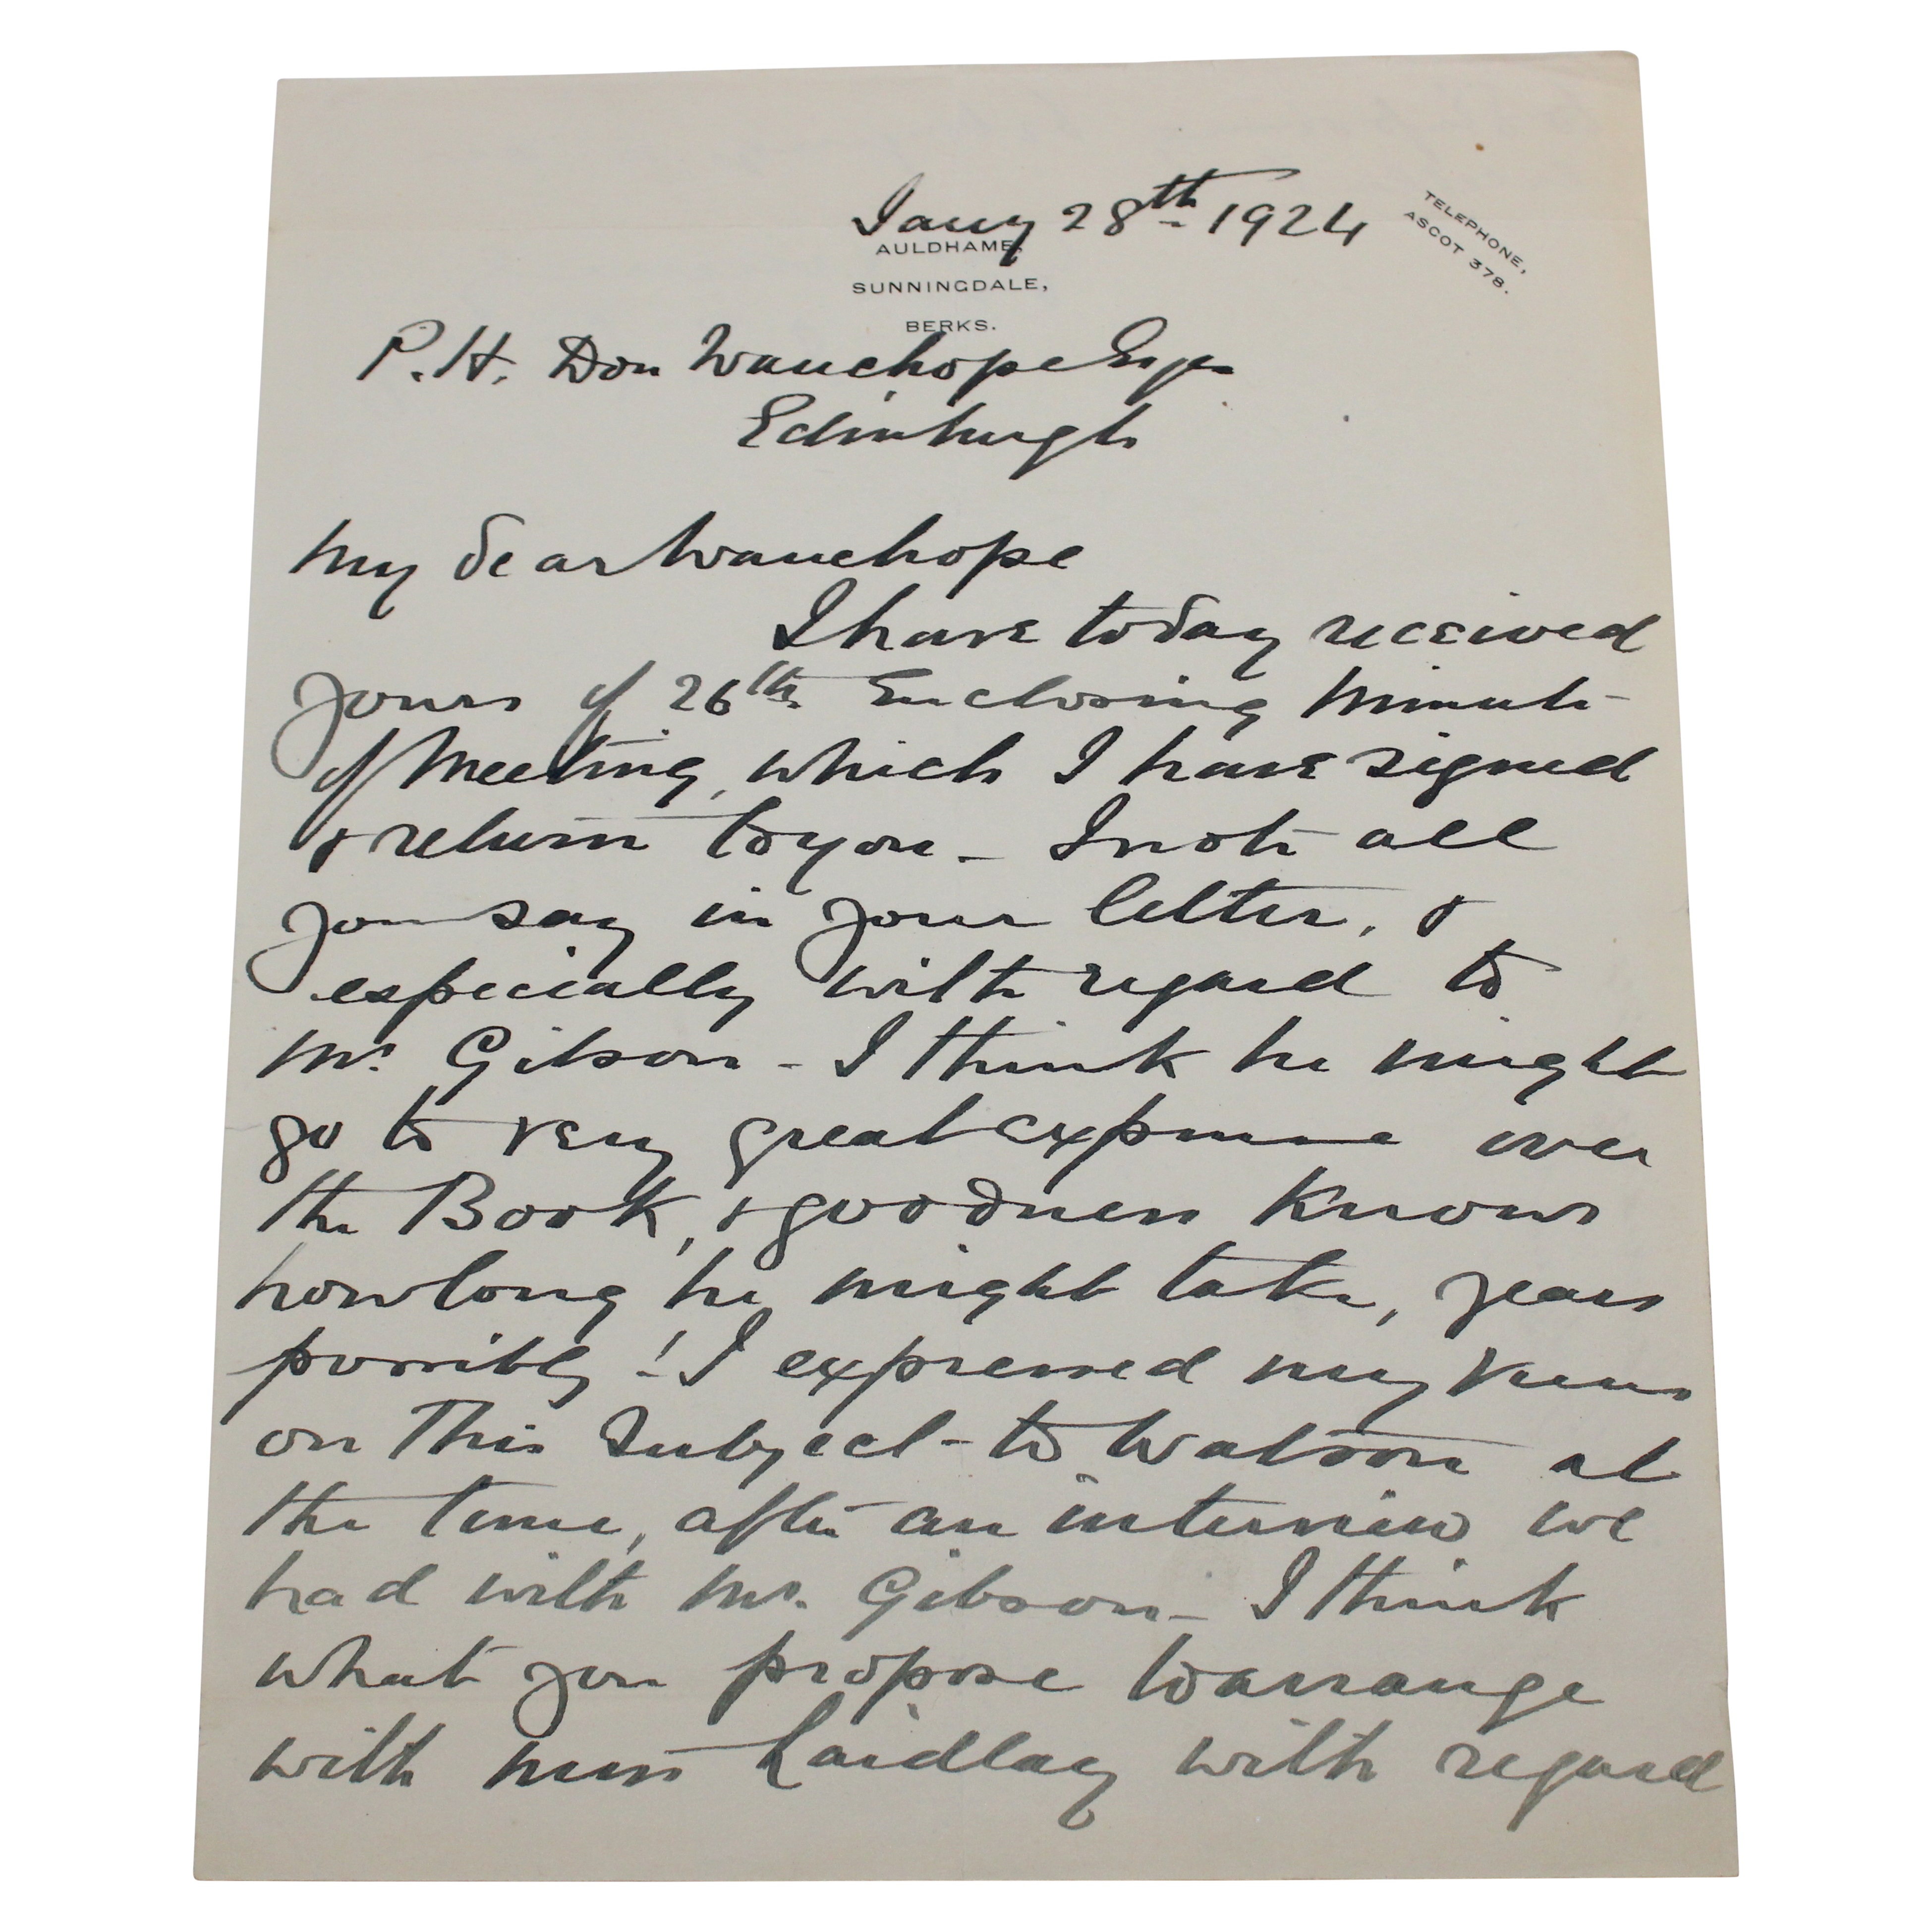 Jany 28th 1924
TELEPHONE,
ASCOT 378.
AULDHAME,
SUNNINGDALE,
BERKS.
P. H. Don Wauchope Esqr
Edinburgh
My dear Wauchope
I have today received
yours of 26th Enclosing Minute
of Meeting, which I have signed
& return to you - I note all
you say in your letter, &
especially with regard to
Mr. Gibson - I think he might
go to very great expense over
the Book, & goodness knows
how long he might take, years
possibly! I expressed my views
on this subject to Watson at
the time, after an interview we
had with Mr. Gibson - I think
what you propose to arrange
with Miss Laidlay with regard